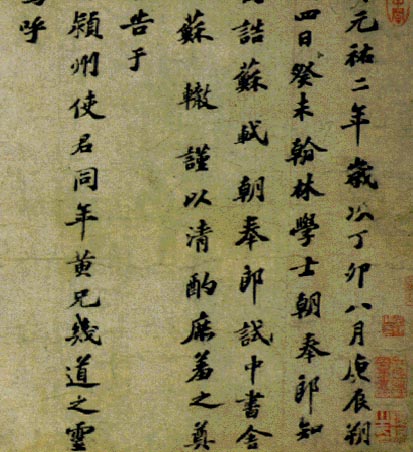 元祐二年歲次丁卯八月庚辰朔
四日癸未翰林學士朝奉郎知
誥蘇軾朝奉郎試中書舍
蘇轍謹以清酌庶羞之奠
告于
潁州使君同年黃兄幾道之靈
呼